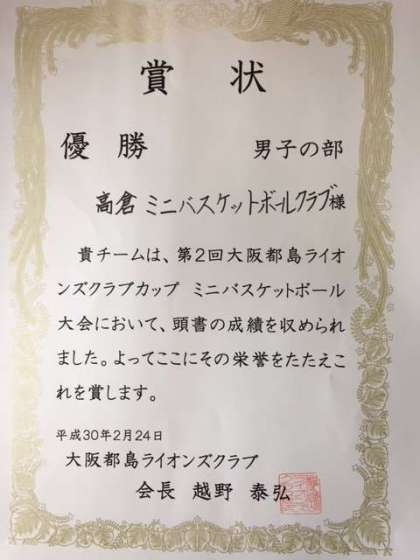 賞状
優勝 男子の部
高倉 ミニバスケットボールクラブ様
貴チームは、第2回大阪都島ライオ
ンズクラブカップ ミニバスケットボール
大会において、頭書の成績を収められ
ました。よってここにその栄誉をたたえこ
れを賞します。
平成30年2月24日
大阪都島ライオンズクラブ
会長 越野 泰弘